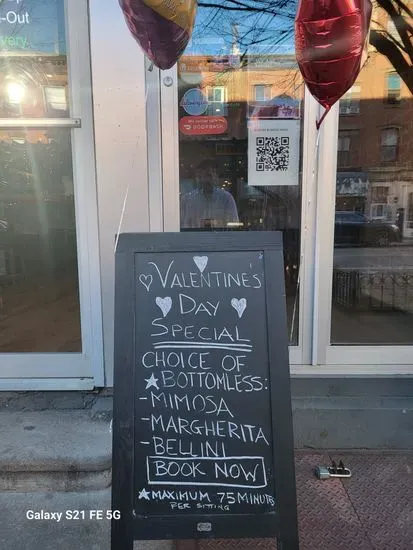 -Out
very.
DOORDASH
♡ VALENTINE'S
DAY
SPECIAL
CHOICE OF
★BOTTOMLESS:
-MIMOSA
-MARGHERITA
-BELLINI
BOOK NOW
★MAXIMUM 75 MINUTES
PER SITTING
Galaxy S21 FE 5G